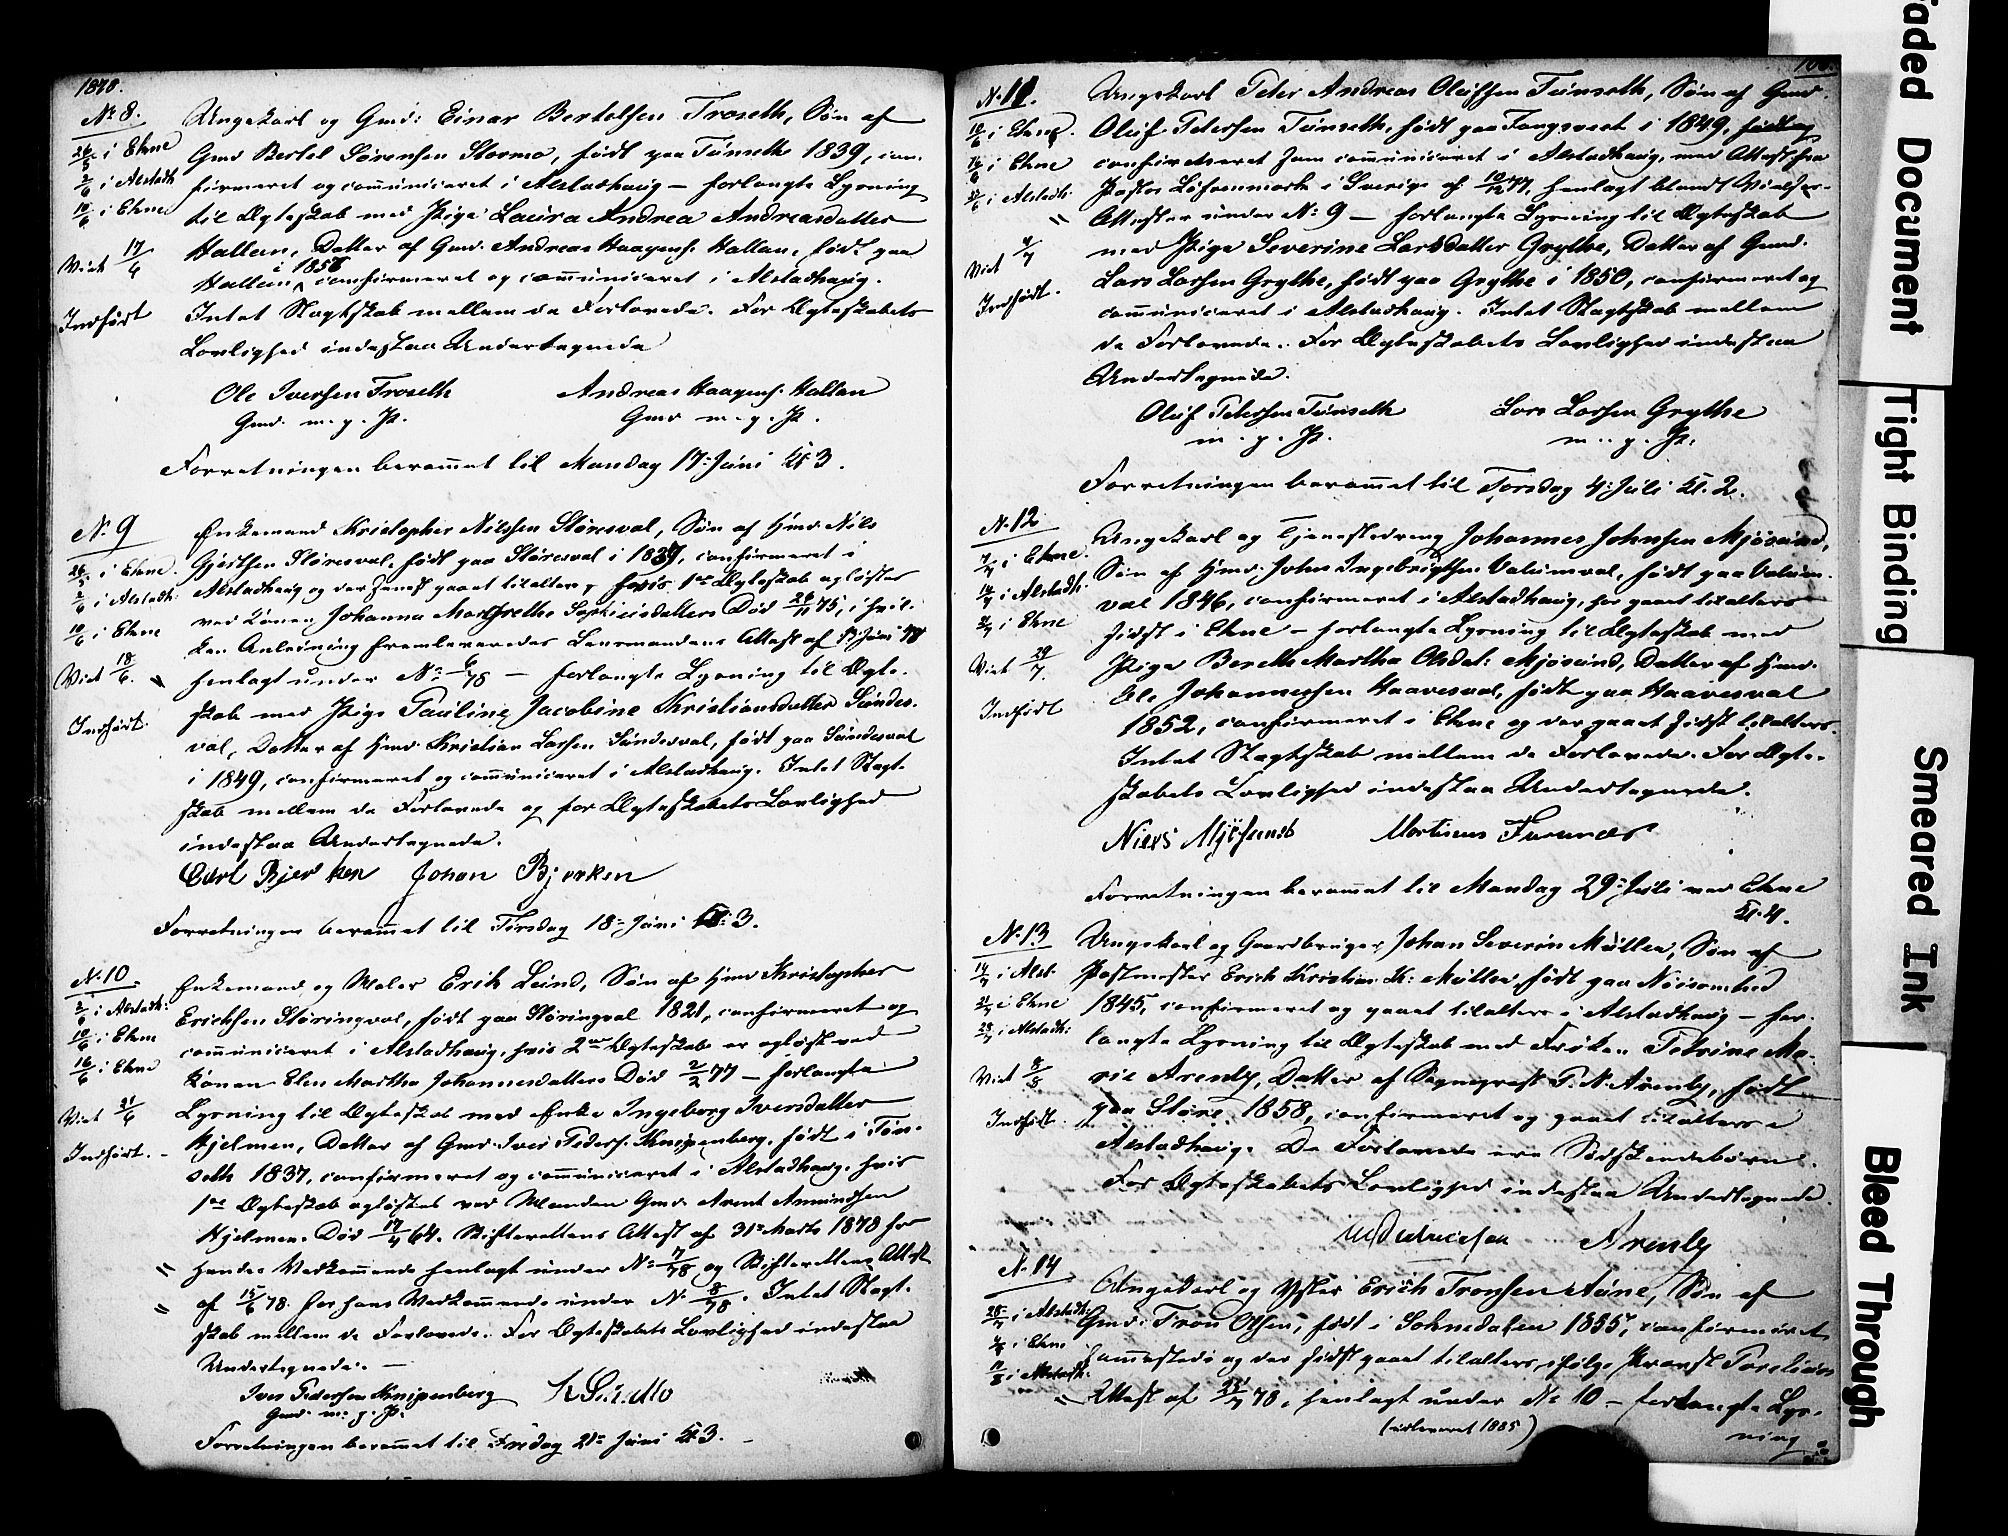 1878.
No 8.
26/5 i Ekne
2/6 i Alstadh
10/6 i Ekne
Viet 17/6
Indført
Ungekarl og Gmd: Einar Bertelsen Troseth, Søn af
Gmd Bertel Sørensen Stormo, født paa Tünseth 1839, con-
firmeret og com̄uniceret i Alstadhaug – forlangte Lysning
til Ægteskab med Pige Laura Andrea Andreasdatter
Hallan, Datter af Gmd. Andreas Haagens. Hallan, født paa
Hallan i 1856 confirmeret og com̄uniceret i Alstadhaug.
Intet Slægtskab mellem de Forlovede. For Ægteskabets
Lovlighed indestaa Undertegnede
Ole Iversen Troseth Andreas Haagens. Hallan
Gmd. m. p. P. Gmd m. p. P.
Forretningen beram̄et til Mandag 17de Juni Kl 3.
No. 9
26/5 i Ekne.
2/6 i Alstadh:
10/6 i Ekne
Viet 18/6.
Indført.
Enkemand Kristopher Nilssen Støresval, Søn af Hmd Nils
Støresval, født paa Støresval i 1837, confirmeret i
Alstadhaug og der gaaet tilalters, hvis 1ste Ægteskab opløstes
ved Konen Johanna Margrethe Død 26/11 75, i hvil-
ken Anledning fremleveredes Lensmandens Attest af Juni 78
henlagt under No 6/78 – forlangte Lysning til Ægte-
skab med Pige Pauline Jacobine Kristiansdatter Sündes-
val, Datter af Hmd. Kristian Larsen Sündesval, født paa Sündesval
i 1849, confirmeret og com̄uniceret i Alstadhaug. Intet Slægt-
skab mellem de Forlovede og for Ægteskabets Lovlighed
indestaa Undertegnede.
Carl Bjerken Johan Bjerken
Forretningen beram̄et til Tirsdag 18de Juni Kl: 3.
No. 10
2/6 i Alstadh:
10/6 i Ekne
16/6 i Ekne
Viet 21/6
Indført.
Enkemand og Maler Erik Lund, Søn af Hmd Kristopher
Ericksen Støringval, født paa Støringval 1821, confirmeret og
com̄uniceret i Alstadhaug, hvis 2det Ægteskab er opløst ved
Konen Elen Martha Johannesdatters Død 2/2 77 – forlangte
Lysning til Ægteskab med Enke Ingeborg Iversdatter
Hjelmen, Datter af Gmd. Iver Peders. Knipenberg, født i Tün-
seth 1837, confirmeret og com̄uniceret i Alstadhaug. hvis
1ste Ægteskab opløstes ved Manden Gmd. Arent Amundsen
Hjelmens Død 17/4 64. Skifterettens Attest af 31te Marts 1878 for
hendes Vedkom̄ende henlagt under No 7/78 og Skifterettens Attest
af 15/6 78. for hans Vedkom̄ende under No. 8/78. Intet Slægt-
skab mellem de Forlovede. For Ægteskabets Lovlighed indestaa
Undertegnede. –
Iver Pedersen Knipenberg
Gmd. m. p. P.
Forretningen beram̄et til Fredag 21de Juni Kl 3. –
No. 11.
10/6 i Ekne.
16/6 i Ekne
i Alstadh.
Viet 4/7
Indført.
Ungekarl Peter Andreas Olüfsen Tünseth, Søn af Gmd.
Olüf Petersen Tünseth, født paa Fangsvest i 1849,
confirmeret com̄uniceret i Alstadhaug, med Attest fra
Pastor i Sverige af 10/12 77, henlagt blandt Vielses-
Attester under No: 9 – forlangte Lysning til Ægteskab
med Pige Severine Larsdatter Grythe, Datter af Gmd.
Lars Larsen Grythe, født paa Grythe i 1850, confirmeret og
com̄uniceret i Alstadhaug. Intet Slægtskab mellem
de Forlovede. For Ægteskabets Lovlighed indestaa
Undertegnede.
Olüf Petersen Tünseth Lars Larsen Grythe
m. p. P. m. p. P.
Forretningen beram̄et til Torsdag 4. Juli Kl. 2.
No. 12
7/7 i Ekne.
14/7 i Alstadh:
21/7 i Ekne
Viet 29/7.
Indført
Ungekarl og Tjenestedreng Johannes Johnsen Mjøsund,
Søn af Hmd. John Ingebrigtsen Valumval, født paa Valum-
val 1846, confirmeret i Alstadhaug, har gaaet tilalters
sidst i Ekne – forlangte Lysning til Ægteskab med
Pige Bereth Martha Olsdat: Mjøsund, Datter af Hmd.
Ole Johannessen Haavesval, født paa Haavesval
1852, confirmeret i Ekne og der gaaet sidst tilalters.
Intet Slægtskab mellem de Forlovede. For Ægte-
skabets Lovlighed indestaa Undertegnede.
Niels Mjøsund Martinus Furunæs
Forretningen beram̄et til Mandag 29de Juli ved Ekne
Kl. 4.
No. 13
14/7 i Alst.
21/7 i Ekne
28/7 i Alstadh:
Viet 8/8
Indført
Ungekarl og Gaardbruger Johan Severin Müller, Søn af
Postmester Erich Kristian K: Müller, født paa Nøisomhed
1845, confirmeret og gaaet tilalters i Alstadhaug – for-
langte Lysning til Ægteskab med Frøken Petrine Ma-
rie Arenly, Datter af Sognepræst P. N. Arenly, født
paa Støre 1858, confirmeret og gaaet tilalters i
Alstadhaug. De Forlovede ere Sødskendebørn.
For Ægteskabets Lovlighed indestaa Undertegnede.
Arenly
No. 14
28/7 i Alstadh:
4/8 i Ekne
11/8 i Alstadh:
Ungekarl og Erich Tronsen Aüne, Søn af
Gmd. Tron Olsen, født i Soknedalen 1855, confirmeret
sam̄esteds og der sidst gaaet tilalters, ifølge Provst
Attest af 78, henlagt under No 10 – forlangte Lys-
(udleveret 1885) ning
Faded Document
Tight Binding
Smeared Ink
Bleed Through